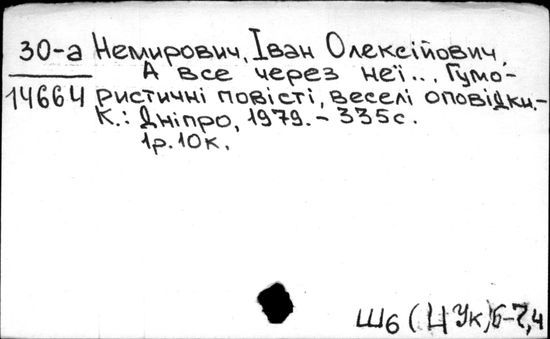 30-а Немирович, Іван Олексійович.
А все через неї... Гумо-
14664 ристичні повісті, веселі оповідки.-
К.: Дніпро, 1979.- 335с.
1р.10к.
Ш6(4Ук)6-7,4